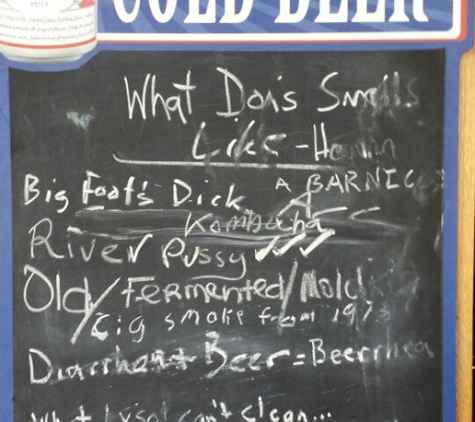 COLD BEER
What Don's Smells
Like - Heaven
Big Foot's Dick
A BARNICLES
Kombucha
River Pussy ✓✓✓
Old/Fermented/Moldy
Cig smoke from 197
Diarrhea + Beer = Beerrhea
What Lysol can't clean...